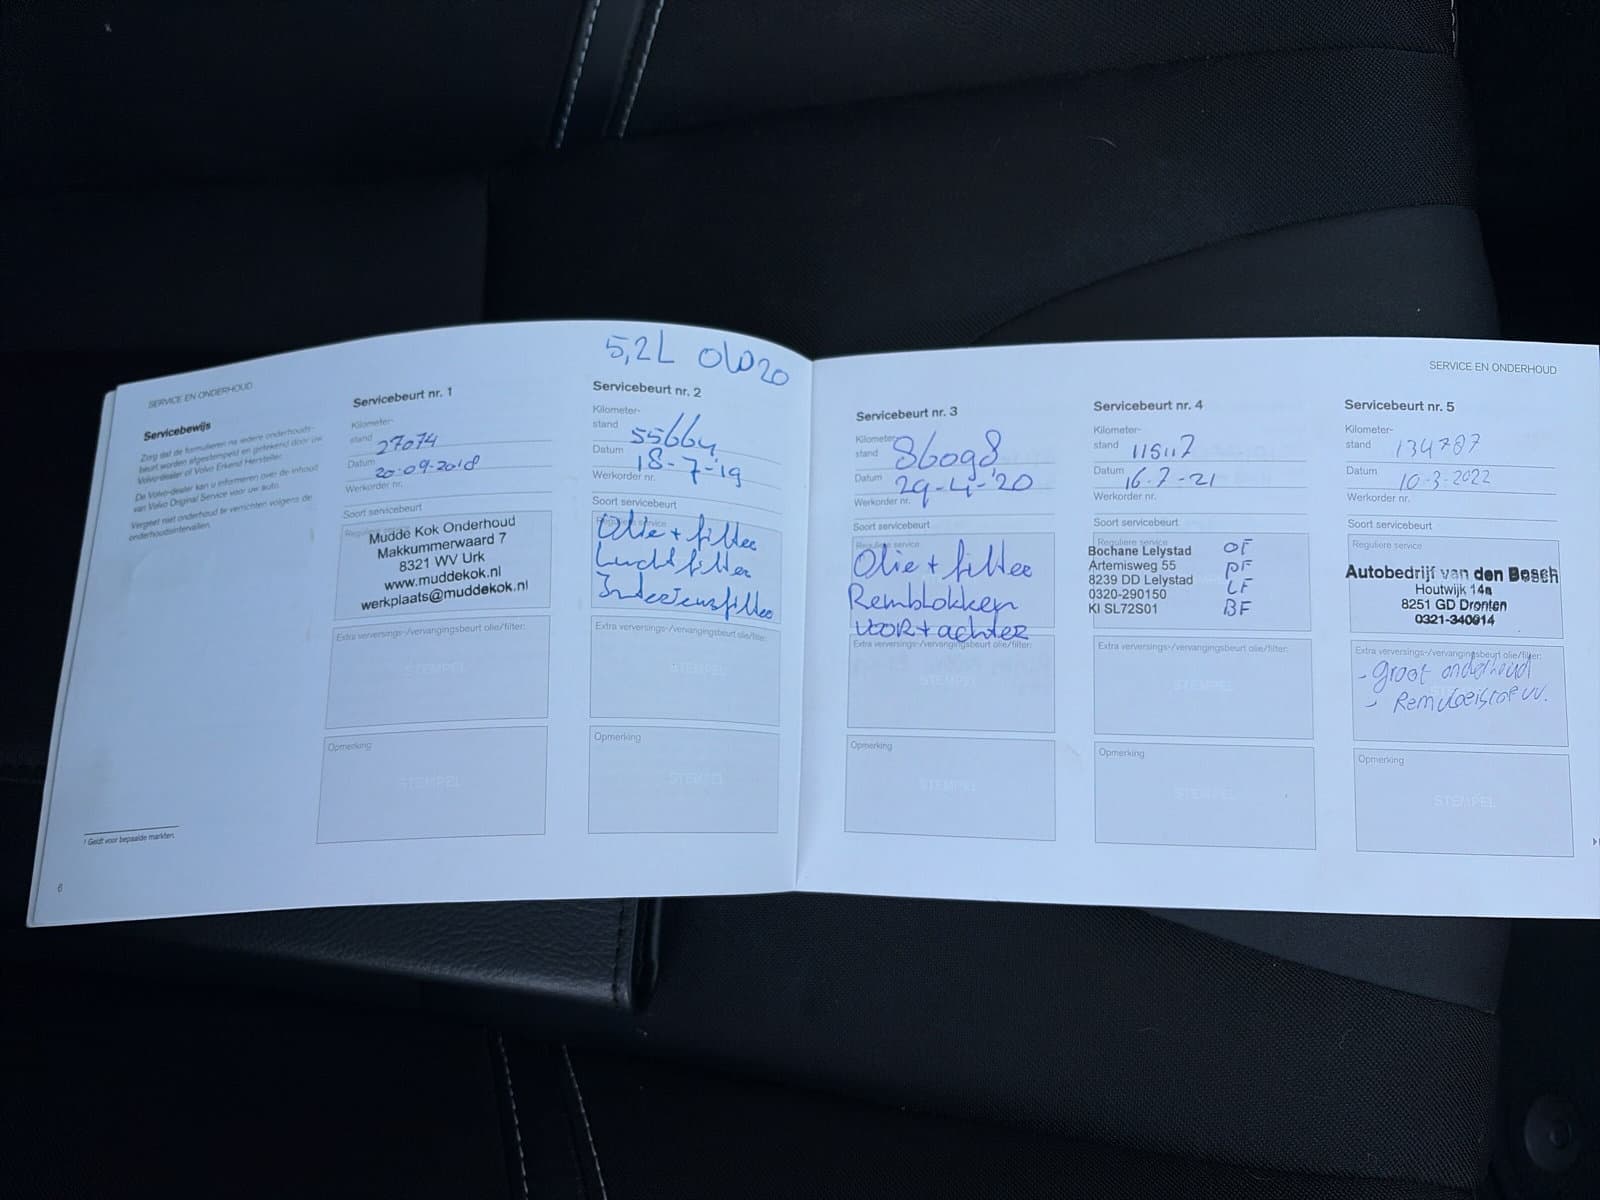 5,2L 0W20
SERVICE EN ONDERHOUD
Servicebewijs
Zorg dat de formulieren na iedere onderhouds-
beurt worden afgestempeld en getekend door uw
Volvo-dealer of Volvo Erkend Hersteller.
De Volvo-dealer kan u informeren over de inhoud
van Volvo Original Service voor uw auto.
Vergeet niet onderhoud te verrichten volgens de
onderhoudsintervallen.
1 Geldt voor bepaalde markten.
6
Servicebeurt nr. 1
Kilometer-
stand 27074
Datum 20-09-2018
Werkorder nr.
Soort servicebeurt
Mudde Kok Onderhoud
Makkummerwaard 7
8321 WV Urk
www.muddekok.nl
werkplaats@muddekok.nl
Extra verversings-/vervangingsbeurt olie/filter:
Opmerking
STEMPEL
Servicebeurt nr. 2
Kilometer-
stand 55664
Datum 18-7-'19
Werkorder nr.
Soort servicebeurt
Reguliere service
Olie + filter
Luchtfilter
Interieurfilter
Extra verversings-/vervangingsbeurt olie/filter:
STEMPEL
Opmerking
STEMPEL
SERVICE EN ONDERHOUD
Servicebeurt nr. 3
Kilometer-
stand 86098
Datum 29-4-'20
Werkorder nr.
Soort servicebeurt
Reguliere service
Olie + filter
Remblokken
VOOR + achter
Extra verversings-/vervangingsbeurt olie/filter:
STEMPEL
Opmerking
STEMPEL
Servicebeurt nr. 4
Kilometer-
stand
Datum 16-7-21
Werkorder nr.
Soort servicebeurt
Reguliere service
Bochane Lelystad OF
Artemisweg 55 PF
8239 DD Lelystad LF
0320-290150 BF
KI SL72S01
Extra verversings-/vervangingsbeurt olie/filter:
STEMPEL
Opmerking
STEMPEL
Servicebeurt nr. 5
Kilometer-
stand 134787
Datum 10-3-2022
Werkorder nr.
Soort servicebeurt
Reguliere service
Autobedrijf van den Bosch
Houtwijk 14a
8251 GD Dronten
0321-340914
Extra verversings-/vervangingsbeurt olie/filter:
- groot onderhoud
- Remvloeistof vv.
Opmerking
STEMPEL